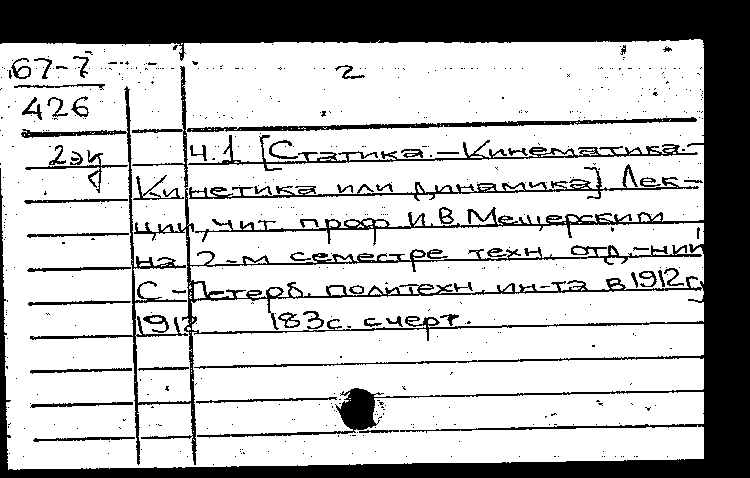 67-7
2
426
2эк
ч.1 [Статика.-Кинематика.-
Кинетика или динамика] Лек-
ции, чит. проф. И.В.Мещерским
на 2-м семестре техн. отд.-ний
С-Петерб. политехн. ин-та в 1912г.
1912 183с. с черт.